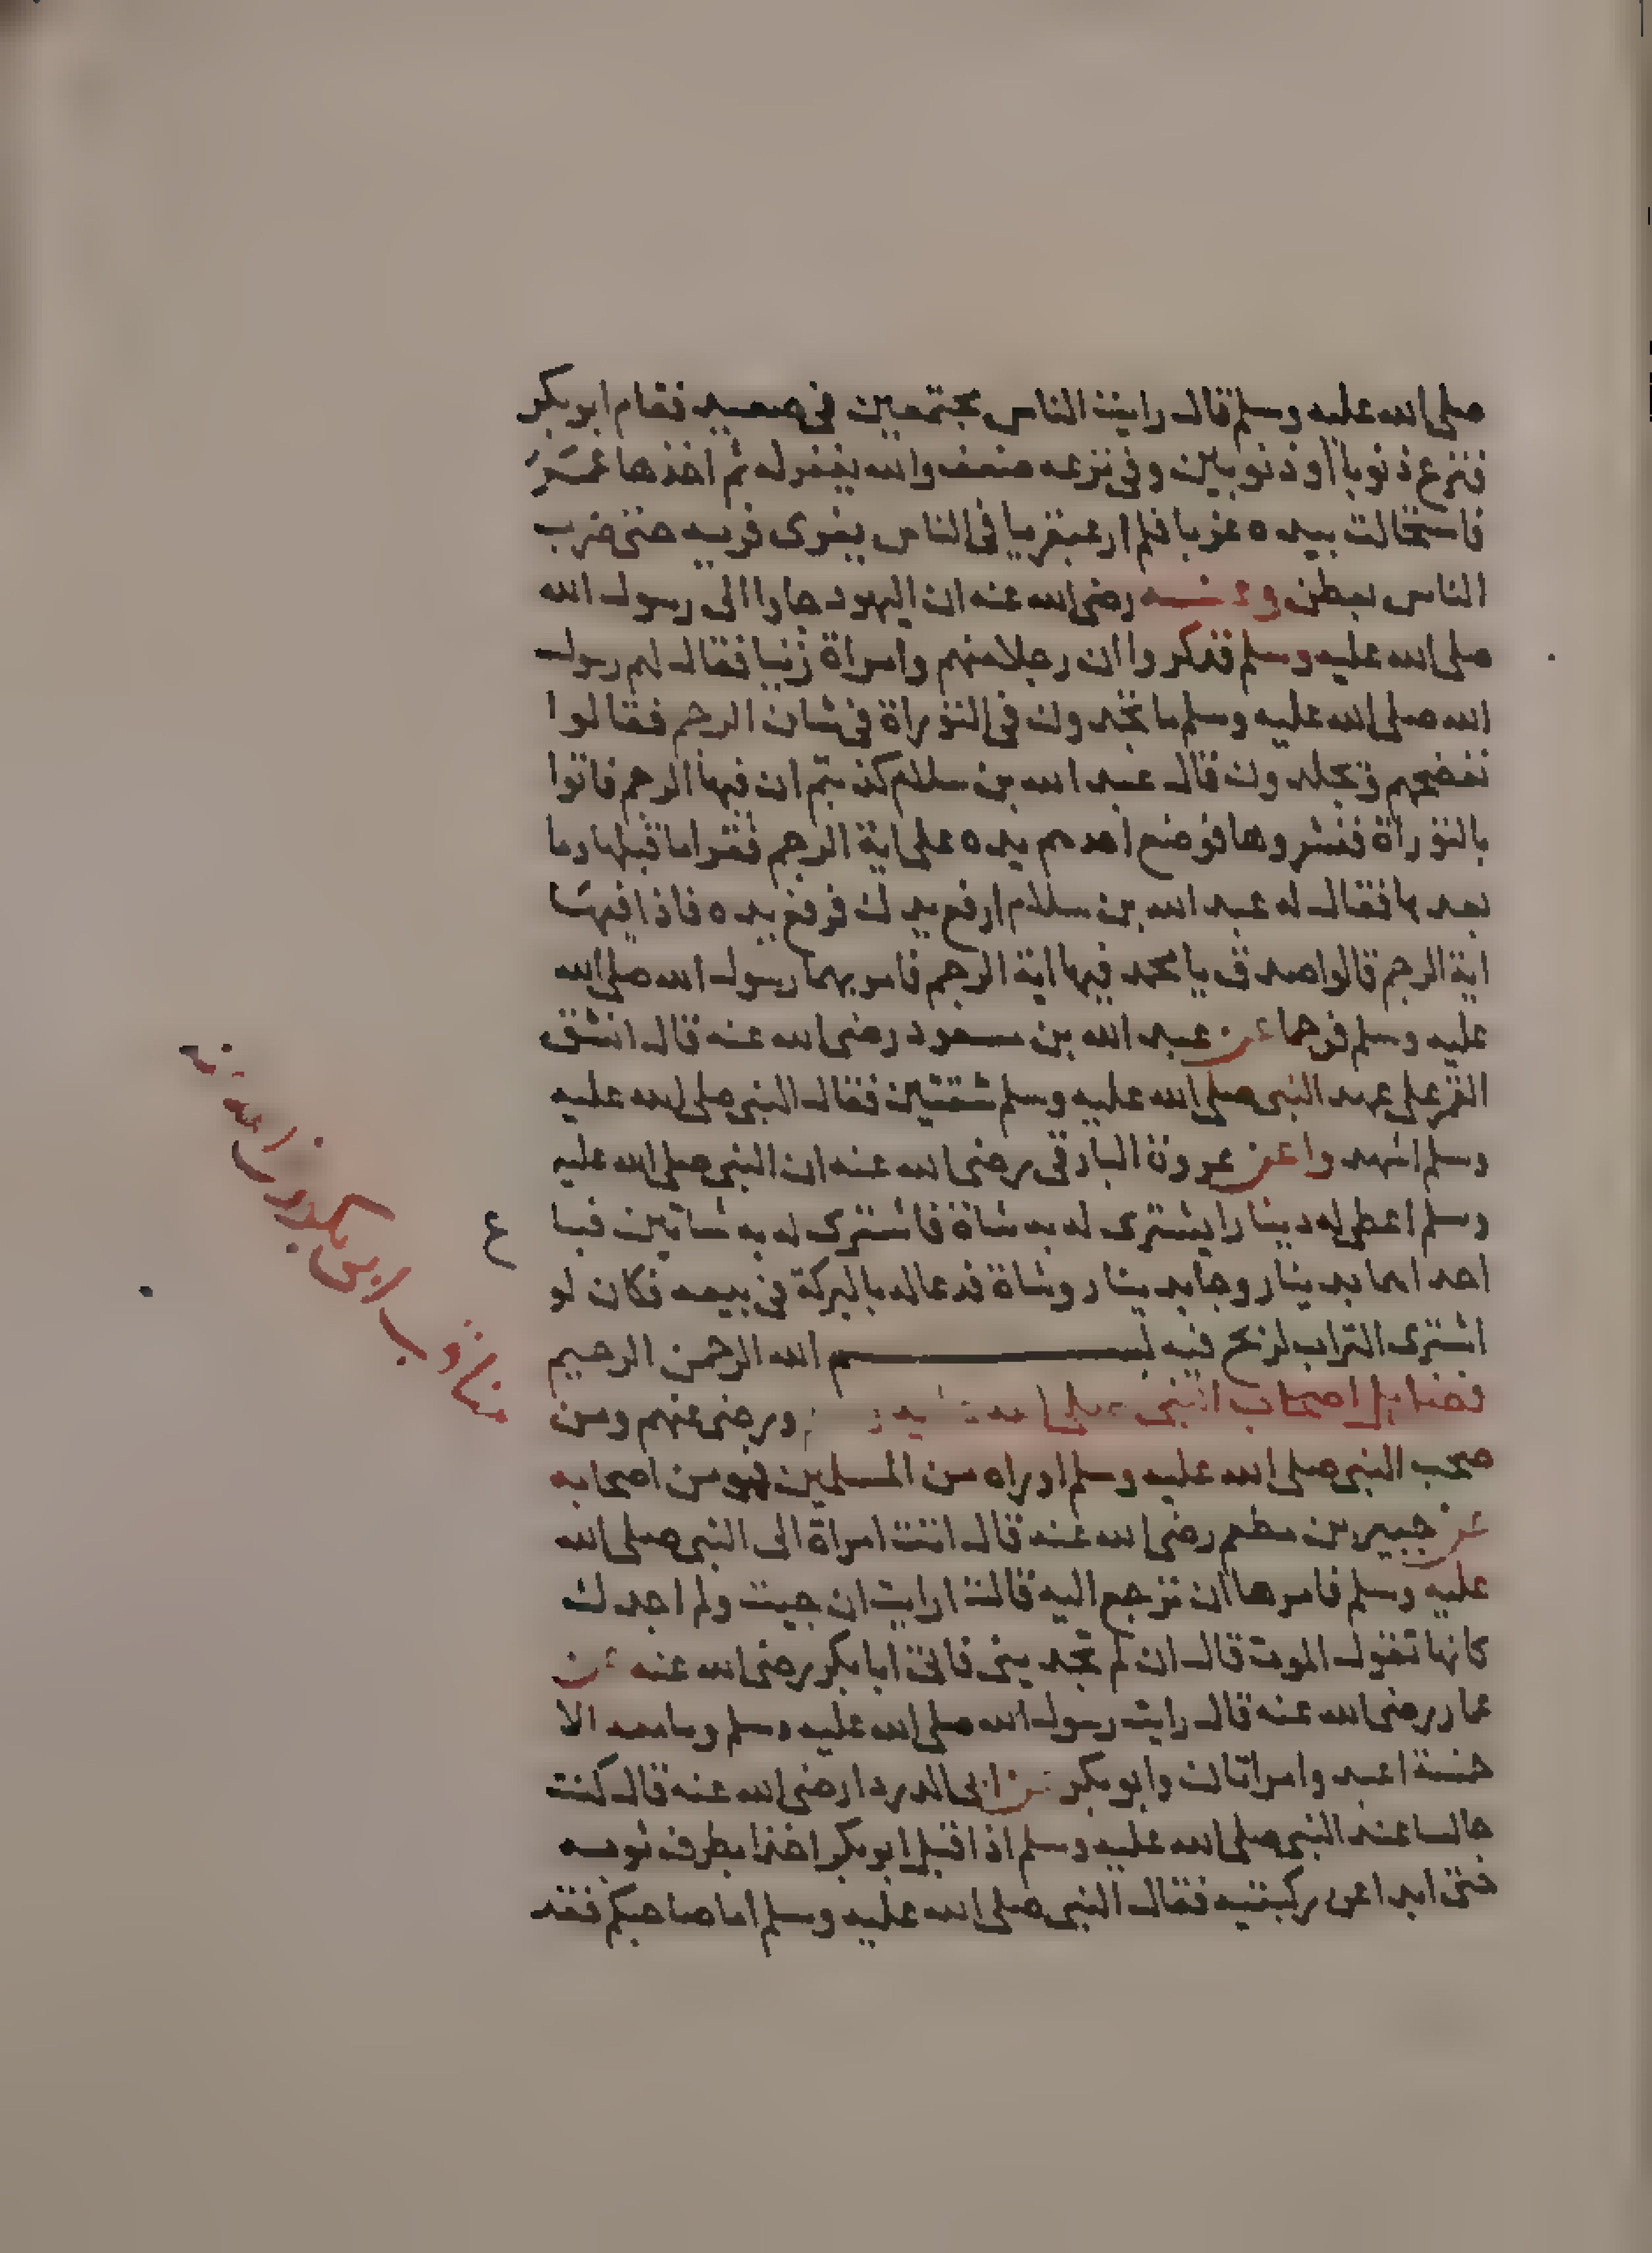 صلى الله عليه وسلم قال رايت الناس مجتمعين في صعيد فقام ابو بكر
فنزع ذنوبا او ذنوبين وفي نزعه ضعف والله يغفر له ثم اخذها عمر
فاستحالت بيده غربا فلم ار عبقريا في الناس يفرى فريه حتى ضرب
الناس بعطن وعنه رضي الله عنه ان اليهود جاوا الى رسول الله
صلى الله عليه وسلم فذكروا ان رجلا منهم وامراة زنيا فقال لهم رسول
الله صلى الله عليه وسلم ما تجدون في التوراة في شان الرجم فقالوا
نفضحهم ونجلدون قال عبد الله بن سلام كذبتم ان فيها الرجم فاتوا
بالتوراة فنشروها فوضع احدهم يده على اية الرجم فقرا ما قبلها وما
بعدها فقال له عبد الله بن سلام ارفع يدك فرفع يده فاذا فيها
اية الرجم قالوا صدق يا محمد فيها اية الرجم فامر بهما رسول الله صلى الله
عليه وسلم فرجما عن عبد الله بن مسعود رضي الله عنه قال انشق
القمر على عهد النبي صلى الله عليه وسلم شقتين فقال النبي صلى الله عليه
وسلم اشهدوا عن عروة البارقي رضي الله عنه ان النبي صلى الله عليه
وسلم اعطاه دينارا يشترى له به شاة فاشترى له به شاتين فباع
احداهما بدينار وجا بدينار وشاة فدعا له بالبركة في بيعه فكان لو
اشترى التراب لربح فيه بسم الله الرحمن الرحيم
فضايل اصحاب النبي صلى الله عليه وسلم ورضي عنهم ومن
صحب النبي صلى الله عليه وسلم او راه من المسلمين فهو من اصحابه
عن جبير بن مطعم رضي الله عنه قال اتت امراة الى النبي صلى الله
عليه وسلم فامرها ان ترجع اليه قالت ارايت ان جيت ولم اجدك
كانها تقول الموت قال ان لم تجديني فاتي ابا بكر رضي الله عنه عن
عمار رضي الله عنه قال رايت رسول الله صلى الله عليه وسلم وما معه الا
خمسة اعبد وامراتان وابو بكر عن ابي الدردا رضي الله عنه قال كنت
جالسا عند النبي صلى الله عليه وسلم اذ اقبل ابو بكر اخذا بطرف ثوبه
حتى ابدا عن ركبتيه فقال النبي صلى الله عليه وسلم اما صاحبكم فقد
مناقب ابي بكر رضي الله عنه